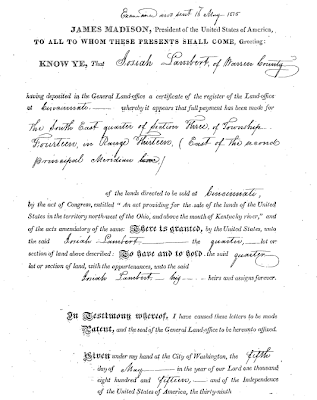 Examined and sent 16 May 1815
JAMES MADISON, President of the United States of America,
TO ALL TO WHOM THESE PRESENTS SHALL COME, Greeting:
KNOW YE, That Josiah Lambert, of Warren County
having deposited in the General Land-office a certificate of the register of the Land-office
at Cincinnati whereby it appears that full payment has been made for
the South East quarter of Section Three, of Township
Fourteen, in Range Thirteen, (East of the second
principal Meridian line)
of the lands directed to be sold at Cincinnati,
by the act of Congress, entitled "An act providing for the sale of the lands of the United
States in the territory northwest of the Ohio, and above the mouth of Kentucky river," and
of the acts amendatory of the same: There is granted, by the United States, unto
the said Josiah Lambert the quarter lot or
section of land above described: To have and to hold the said quarter
lot or section of land, with the appurtenances, unto the said
Josiah Lambert his heirs and assigns forever.
In Testimony whereof, I have caused these letters to be made
Patent, and the seal of the General Land-office to be hereunto affixed.
Given under my hand at the City of Washington, the fifth
day of May in the year of our Lord one thousand
eight hundred and fifteen and of the Independence
of the United States of America, the thirty-ninth